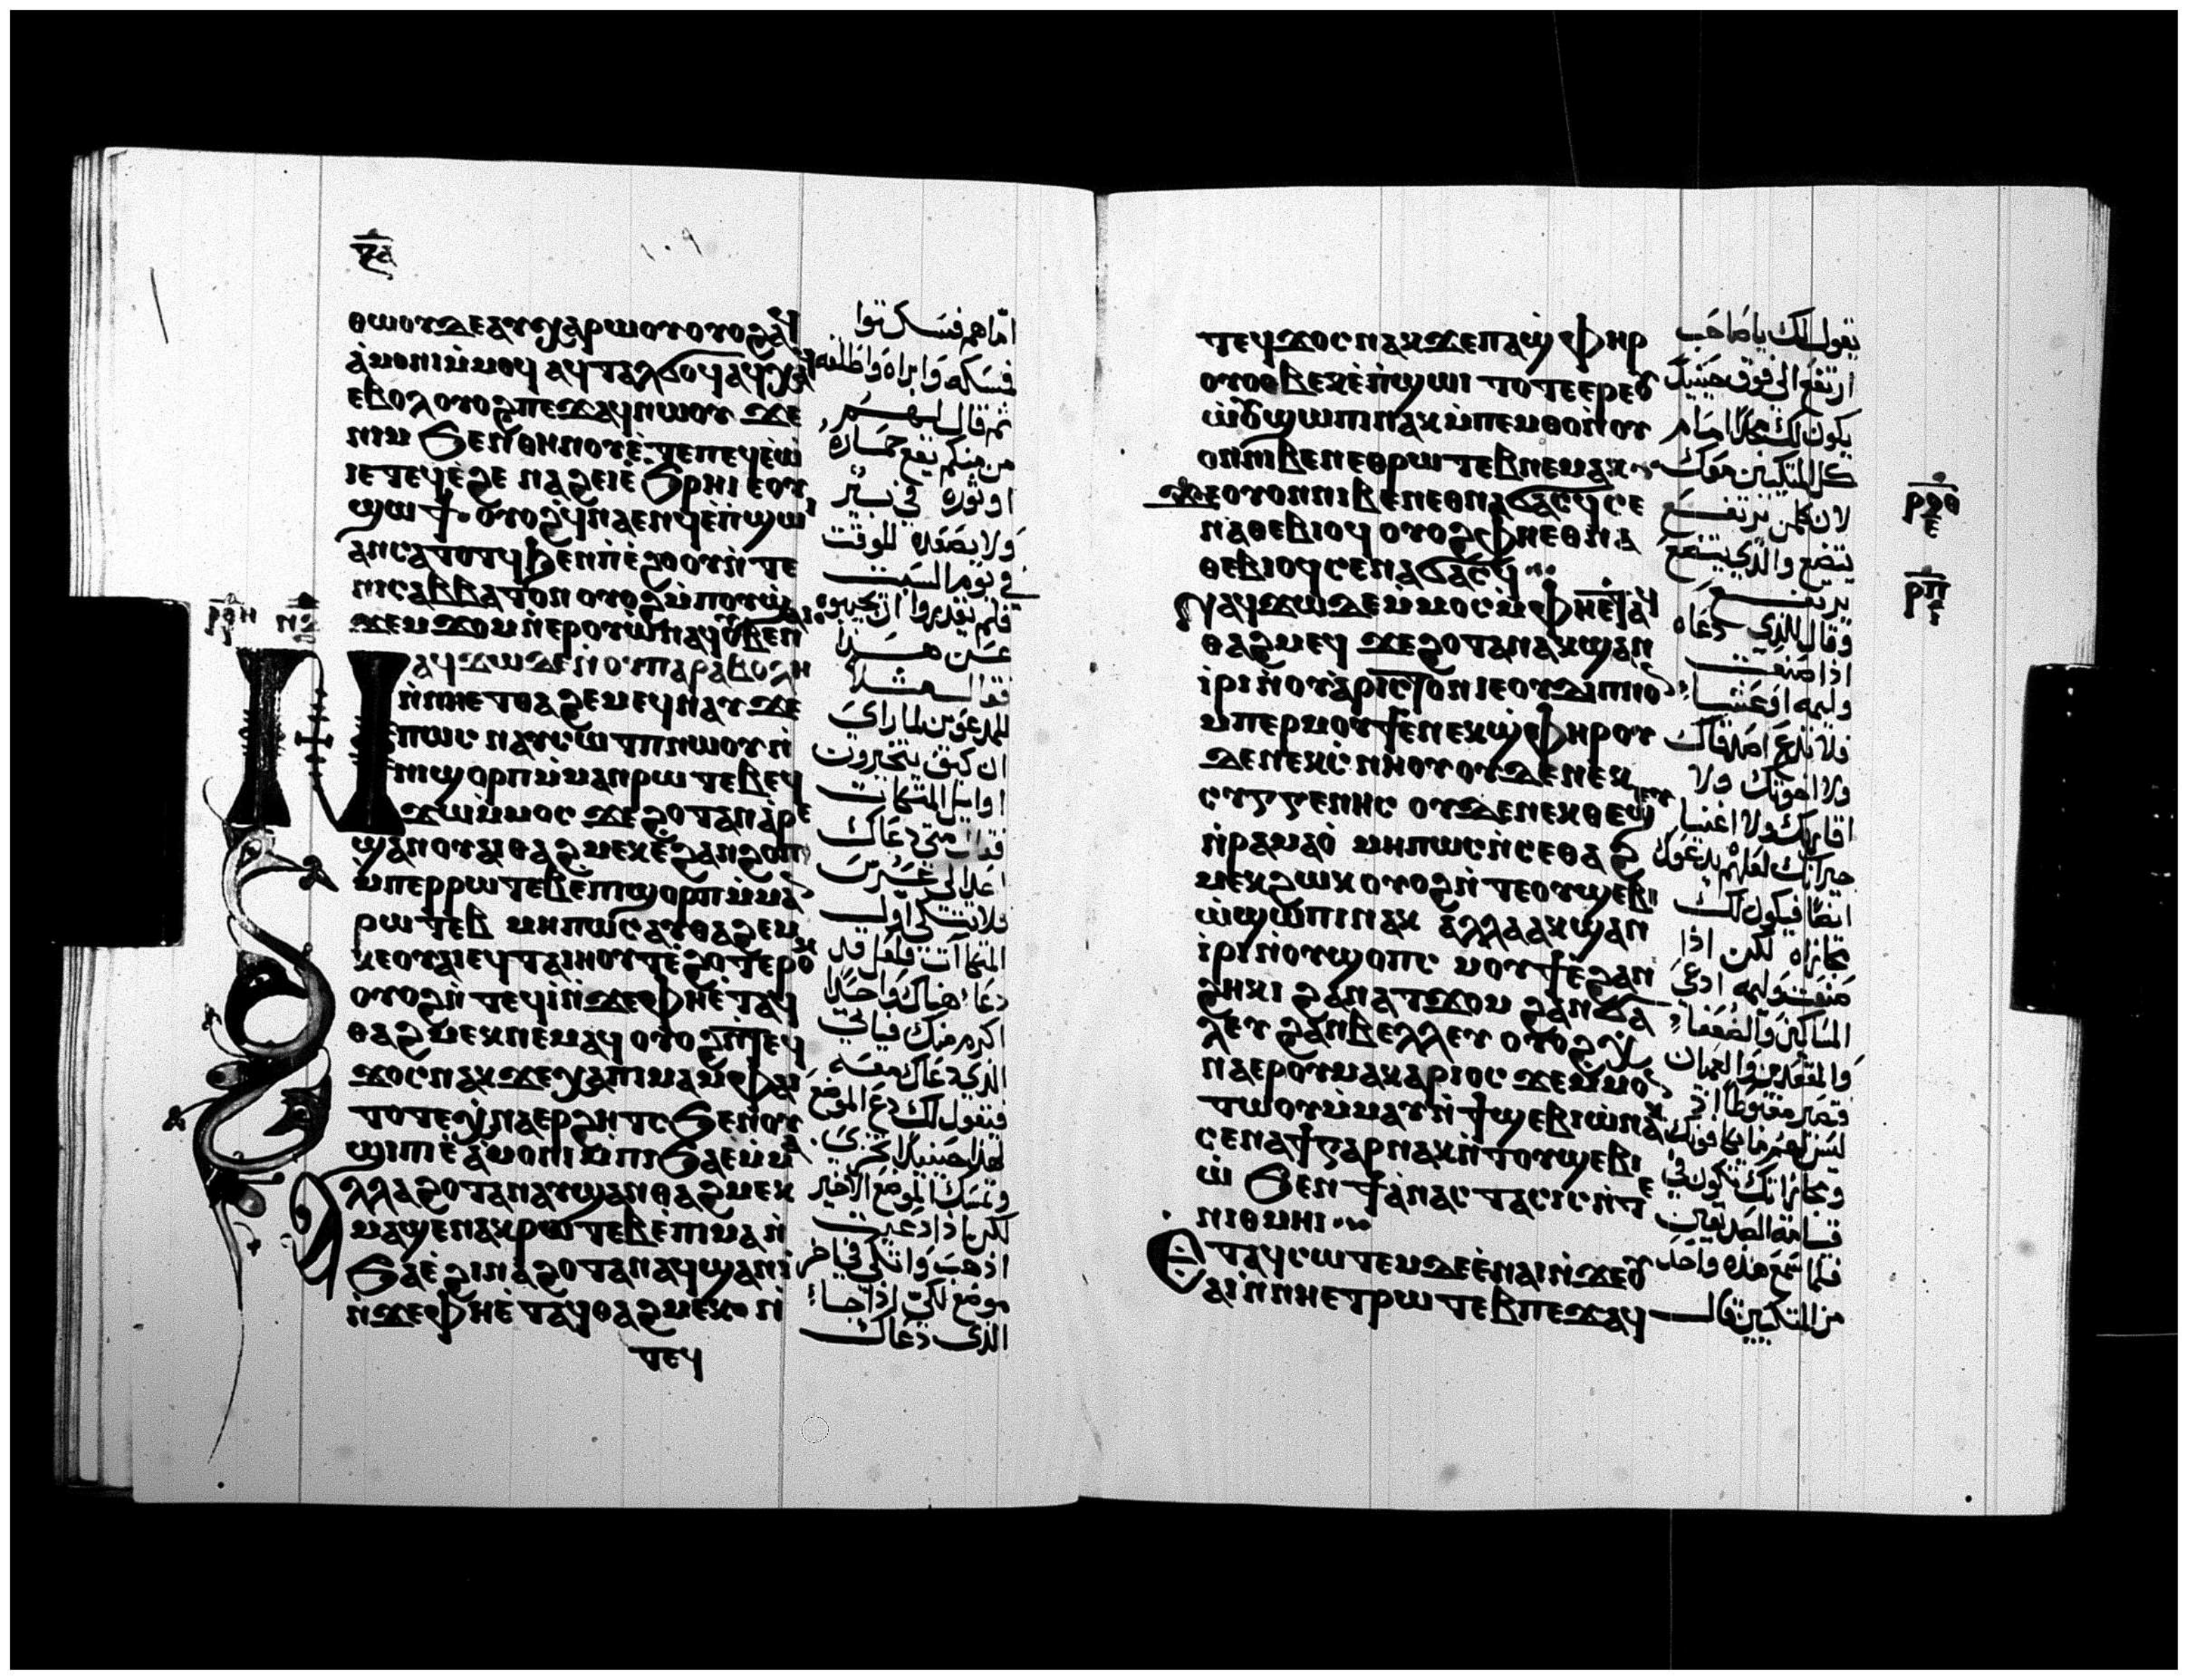 ϥⲁ
ⲑⲱⲟⲩ ⲇⲉ ⲁⲩⲭⲁⲣⲱⲟⲩ ⲟⲩⲟϩ ⲁϥ
ⲁⲙⲟⲛⲓ ⲙⲙⲟϥ ⲁϥⲧⲁⲗϭⲟϥ ⲁϥⲭⲁϥ
ⲉⲃⲟⲗ ⲟⲩⲟϩ ⲡⲉϫⲁϥ ⲛⲱⲟⲩ ϫⲉ
ⲛⲓⲙ ϧⲉⲛ ⲑⲏⲛⲟⲩ ⲉⲧⲉ ⲡⲉϥⲉⲱ
ⲓⲉ ⲧⲉϥⲉϩⲉ ⲛⲁϩⲉⲓ ⲉϧⲣⲏⲓ ⲉⲟⲩ
ϣⲱϯ ⲟⲩⲟϩ ϥⲛⲁⲉⲛϥ ⲉⲡϣⲱⲓ
ⲁⲛ ⲥⲁⲧⲟⲧϥ ϧⲉⲛ ⲡⲓⲉϩⲟⲟⲩ ⲛⲧⲉ
ⲛⲓⲥⲁⲃⲃⲁⲧⲟⲛ ⲟⲩⲟϩ ⲙⲡⲟⲩϣ
ϫⲉⲙϫⲟⲙ ⲛⲉⲣⲟⲩⲱ ⲛⲁϥ ⲟⲩⲃⲉ ⲛⲁⲓ
ⲣⲟⲏ ⲛⲍ
ⲛⲁϥϫⲱ ⲇⲉ ⲛⲟⲩⲡⲁⲣⲁⲃⲟⲗⲏ
ⲛⲛⲏ ⲉⲧⲑⲁϩⲉⲙ ⲉϥⲛⲁⲩ ϫⲉ
ⲡⲱⲥ ⲛⲁⲩⲥⲱⲧⲡ ⲛⲱⲟⲩ ⲛ
ⲛⲓϣⲟⲣⲡ ⲙⲙⲁⲛⲣⲱⲧⲉⲃ ⲉϥ
ϫⲱ ⲙⲙⲟⲥ ϫⲉ ϩⲟⲧⲁⲛ ⲁⲣⲉ
ϣⲁⲛ ⲟⲩⲁⲓ ⲑⲁϩⲙⲉⲕ ⲉϩⲁⲛϩⲟⲡ
ⲙⲡⲉⲣⲣⲱⲧⲉⲃ ⲉⲡⲓϣⲟⲣⲡ ⲙⲙⲁⲛ
ⲣⲱⲧⲉⲃ ⲙⲏⲡⲱⲥ ⲁⲩⲑⲁϩⲉⲙ
ⲕⲉⲟⲩⲁⲓ ⲉϥⲧⲁⲓⲏⲟⲩⲧ ⲉϩⲟⲧⲉⲣⲟⲕ
ⲟⲩⲟϩ ⲛⲧⲉϥⲓ ⲛϫⲉ ⲫⲏ ⲉⲧⲁϥ
ⲑⲁϩⲙⲉⲕ ⲛⲉⲙⲁϥ ⲟⲩⲟϩ ⲛⲧⲉϥ
ϫⲟⲥ ⲛⲁⲕ ϫⲉ ⲭⲁ ⲡⲓⲙⲁ ⲙⲫⲁⲓ
ⲧⲟⲧⲉ ⲭⲛⲁⲉⲣϩⲏⲧⲥ ϧⲉⲛ ⲟⲩ
ϣⲓⲡⲓ ⲉⲁⲙⲟⲛⲓ ⲙⲡⲓϧⲁⲉ ⲙⲙⲁ
ⲁⲗⲗⲁ ϩⲟⲧⲁⲛ ⲁⲩϣⲁⲛⲑⲁϩⲙⲉⲕ
ⲙⲁϣⲉⲛⲁⲕ ⲣⲱⲧⲉⲃ ⲉⲡⲓⲙⲁ ⲛ
ϧⲁⲉ ϩⲓⲛⲁ ϩⲟⲧⲁⲛ ⲁϥϣⲁⲛⲓ
ⲛϫⲉ ⲫⲏ ⲉⲧⲁϥⲑⲁϩⲙⲉⲕ ⲛ
ⲧⲉϥ
امّا هم فسكتوا
فمسكه وابراه واطلقه
ثم قال لهم
من منكم يقع حماره
او ثوره في بير
ولا يصعده للوقت
في يوم السبت
فلم يقدروا ان يجيبوه
عن هذا
فقال مثلا
للمدعوين لما راى
ان كيف يتخيرون
اوايل المتكات
قوله متى دعاك
احد الى عرس
فلا تتكي اول
المتكات فلعل قد
دعا هناك واحدًا
اكرم منك فياتي
الذي دعاك معه
فيقول لك دع الموضع
لهذا حينيذ تخزى
وتمسك الموضع الاخير
لكن اذا دعيت
اذهب واتكي في اخر
موضع لكي اذا جا
الذي دعاك
ⲧⲉϥϫⲟⲥ ⲛⲁⲕ ϫⲉ ⲡⲁϣⲫⲏⲣ
ⲟⲩⲟⲑⲃⲉⲕ ⲉⲡϣⲱⲓ ⲧⲟⲧⲉ ⲉⲣⲉⲟⲩ
ⲱⲟⲩ ϣⲱⲡⲓ ⲛⲁⲕ ⲙⲡⲉⲙⲑⲟ ⲛⲟⲩ
ⲟⲛ ⲛⲓⲃⲉⲛ ⲉⲑⲣⲱⲧⲉⲃ ⲛⲉⲙⲁⲕ
ϫⲉ ⲟⲩⲟⲛ ⲛⲓⲃⲉⲛ ⲉⲑⲛⲁϭⲁⲥϥ ⲥⲉ
ⲛⲁⲑⲉⲃⲓⲟϥ ⲟⲩⲟϩ ⲫⲏ ⲉⲑⲛⲁ
ⲑⲉⲃⲓⲟϥ ⲥⲉⲛⲁϭⲁⲥϥ
ⲛⲁϥϫⲱ ⲇⲉ ⲙⲙⲟⲥ ⲙⲫⲏ ⲉⲧⲁϥ
ⲑⲁϩⲙⲉϥ ϫⲉ ϩⲟⲧⲁⲛ ⲁⲕϣⲁⲛ
ⲓⲣⲓ ⲛⲟⲩⲁⲣⲓⲥⲧⲟⲛ ⲓⲉ ⲟⲩⲇⲓⲡⲛⲟⲛ
ⲙⲡⲉⲣⲙⲟⲩϯ ⲉⲛⲉⲕϣⲫⲏⲣ ⲟⲩ
ⲇⲉ ⲛⲉⲕⲥⲛⲏⲟⲩ ⲟⲩⲇⲉ ⲛⲉⲕ
ⲥⲩⲅⲅⲉⲛⲏⲥ ⲟⲩⲇⲉ ⲛⲉⲕⲑⲉϣⲉⲩ
ⲛⲣⲁⲙⲁⲟ ⲙⲏⲡⲱⲥ ⲛⲥⲉⲑⲁϩ
ⲙⲉⲕ ϩⲱⲕ ⲟⲩⲟϩ ⲛⲧⲉⲟⲩϣⲉⲃⲓ
ⲱ ϣⲱⲡⲓ ⲛⲁⲕ ⲁⲗⲗⲁ ⲁⲕϣⲁⲛ
ⲓⲣⲓ ⲛⲟⲩϣⲟⲡⲥ ⲙⲟⲩϯ ⲉϩⲁⲛ
ϩⲏⲕⲓ ϩⲁⲛⲁⲧϫⲟⲙ ϩⲁⲛϭⲁ
ⲗⲉⲩ ϩⲁⲛⲃⲉⲗⲗⲉⲩ ⲟⲩⲟϩ ⲭ
ⲛⲁⲉⲣ ⲟⲩⲙⲁⲕⲁⲣⲓⲟⲥ ϫⲉ ⲙⲙⲟⲛ
ⲧⲱⲟⲩ ⲙⲙⲁⲩ ⲛϯϣⲉⲃⲓⲱ ⲛⲁⲕ
ⲥⲉⲛⲁϯ ⲅⲁⲣ ⲛⲁⲕ ⲛⲧⲟⲩϣⲉⲃⲓ
ⲱ ϧⲉⲛ ϯⲁⲛⲁⲥⲧⲁⲥⲓⲥ ⲛⲧⲉ
ⲛⲓⲑⲙⲏⲓ
ⲉⲧⲁϥⲥⲱⲧⲉⲙ ⲇⲉ ⲉⲛⲁⲓ ⲛϫⲉ ⲟⲩ
ⲁⲓ ⲛⲛⲏ ⲉⲧⲣⲱⲧⲉⲃ ⲡⲉϫⲁϥ
يقول لك يا صاحب
ارتفع الى فوق حينيذ
يكون لك مجدًا امام
كل المتكيين معك
لان كل من يرتفع
يتضع والذي يتضع
يرتفع
وقال للذي دعاه
اذا صنعت
وليمه او عشا
فلا تدع اصدقاك
ولا اخوتك ولا
اقاربك ولا اغنيا
جيرانك لعلهم يدعوك
ايضا فيكون لك
مجازاه لكن اذا
صنعت وليمه ادعي
المساكين والضعفا
والمقعدين والعميان
فتصير مغبوطا اذ
ليس لهم ما يجازونك
ومجازاتك تكون في
قيامة الصديقين
فلما سمع هذه واحد
من المتكيين قال
ⲣⲟⲑ
ⲉ
ⲣⲡ
ⲉ